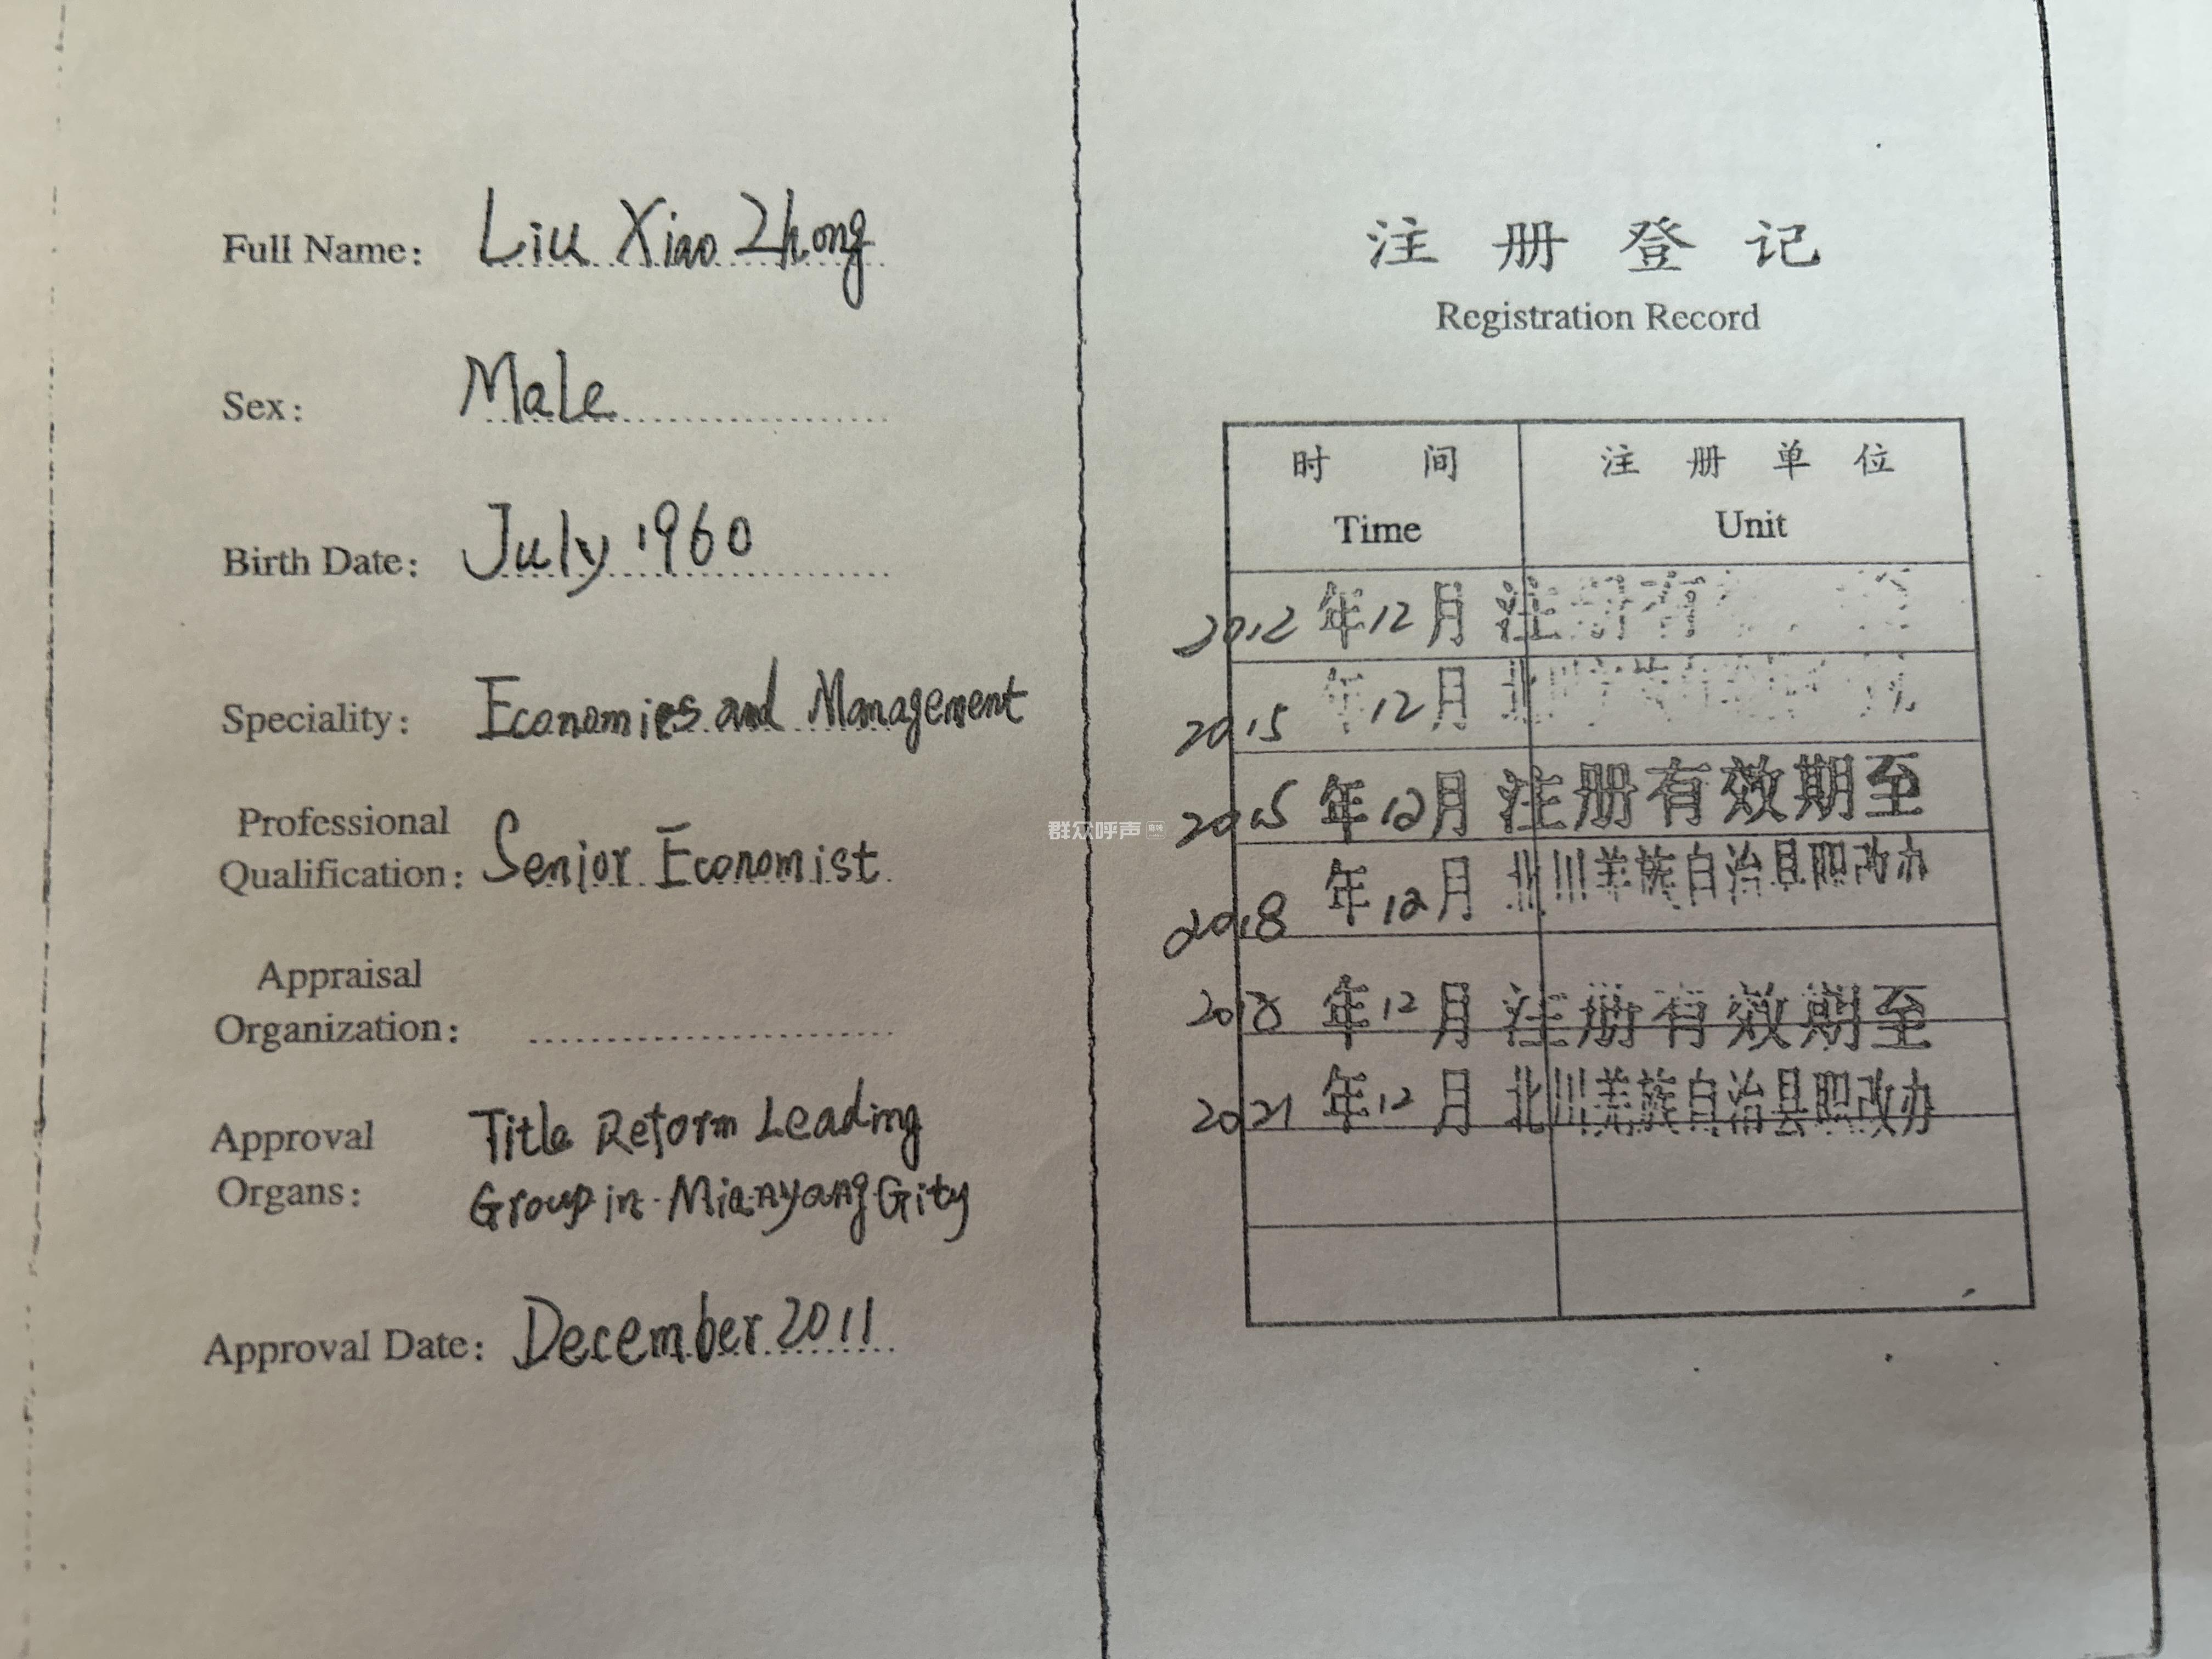 Full Name: Liu Xiao Zhong
Sex: Male
Birth Date: July 1960
Speciality: Economies and Management
Professional
Qualification: Senior Economist
Appraisal
Organization:
Approval Title Reform Leading
Organs: Group in Mianyang Gity
Approval Date: December 2011
群众呼声
注册登记
Registration Record
时间 注册单位
Time Unit
2012年12月注册有
2015年12月北川
2015年12月注册有效期至
2018年12月北川羌族自治县职改办
2018年12月注册有效期至
2021年12月北川羌族自治县职改办